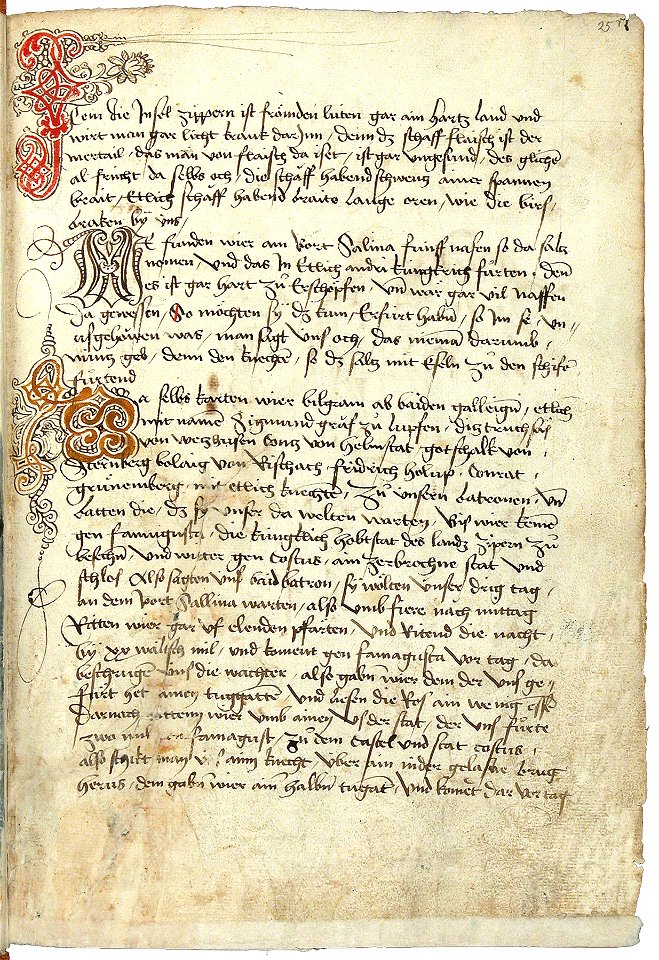 25
Item die Insel zippern ist frömden lüten gar ain hartz land und
wirt man gar licht krank dar Inn / denn dz schaff flaisch ist der
mertail / das man von flaisch da iset / ist gar ungesund / des glichē
al frücht / da selbs och / die schäff habend schwentz ainer spannen
brait / Etlich schäff habend braite lange oren / wie die
braken by uns /
funden wier am port Salina fünff nafen so da saltz
nomen / und das In Etlich andri küngkrich fürten / den
es ist gar hart zů Erschöpfen und wär gar vil naffen
Ja gewessen / So möchten sy dz kum / Erfürt habn / so Im se / un
usgehöwen was / man sagt uns och / das nieman darumb
geb / denn den knechtē / so dz saltz mit Eseln zů den schifē
fürtend
Da selbs karten wier bilgram ab baiden galleigū / etlich
mit namē Sigmund graf zů Lupfen / diz truchsäs
von wetzhusen Contz von helmstat gotschalk von
Sternberg bolaig von Rischach / fridrich / Conrat
grünemberg / mit etlich knechtē / Zů unsern batronen / Un
batten die / dz sy unser da welten warten / bis wier kemē
gen famagusta / die küngklich hobtstat des landz Zipern zů
beschen und witter gen Costus / ain zerbrochne stat und
schlos Also sagten uns baid batron / sy wölten unser drig tag
an dem port Sallina warten / also umb fiere nach mittag
Ritten wier gar uf elenden pfärten / und Ritend die nacht
by xx wälisch mil / und kument gen famagusta vor tag / da
beschrigen uns die wachter / also gabn wier dem der uns ge
fürt het ainen tuggatten und liesen die Ros ain wenig
Darnach rittem wier umb ainen us der stat / der uns fürte
zwo mil gen famagust zů dem Castel und stat Costus
also schikt man us ainn knecht uber ain nider gelasne brug
herus / dem gabn wier ain halbn tugatē / und komēt dar vor tag